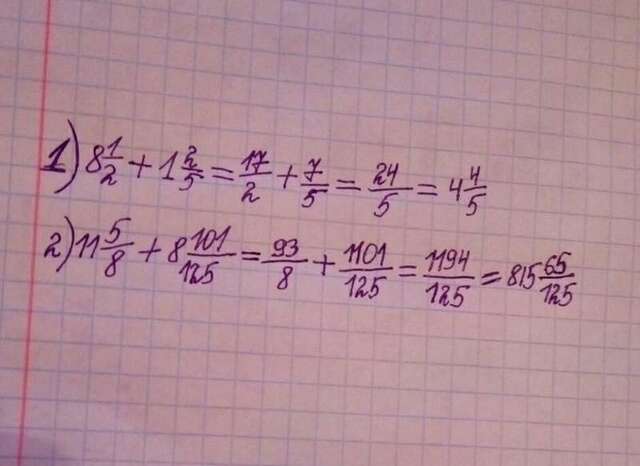 1) 8 1/2 + 1 2/5 = 17/2 + 7/5 = 24/5 = 4 4/5
2) 11 5/8 + 8 101/125 = 93/8 + 1101/125 = 1194/125 = 815 65/125